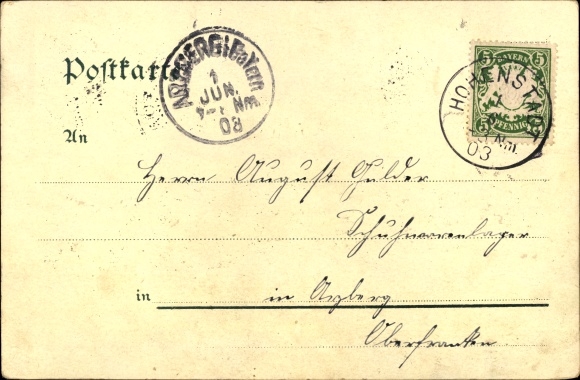 Postkarte
ARZBERG i. Bayern
1
JUN.
Nm
03
BAYERN
5 5
5 PFENNIG
HOHENSTADT
Nm.
03
An
Herrn August Gulder
Schuhwarenlager
in in Arzberg
Oberfranken